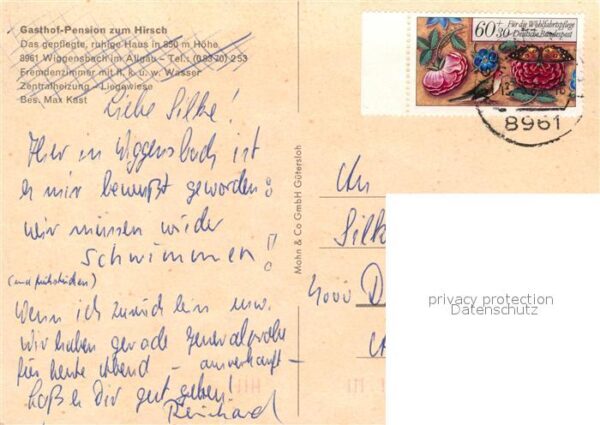 Gasthof-Pension zum Hirsch
Das gepflegte, ruhige Haus in 850 m Höhe
8961 Wiggensbach im Allgäu - Tel.: (08370) 253
Fremdenzimmer mit fl. k. u. w. Wasser
Zentralheizung - Liegewiese
Bes. Max Kast
Liebe Silke!
Hier in Wiggensbach ist
es mir bewußt geworden:
wir müssen wieder
schwimmen!
(und frühstücken)
Wenn ich zurück bin usw.
Wir haben gerade Generalprobe
für heute Abend - ausverkauft -
Laß es Dir gut gehen!
Reinhard
Mohn & Co GmbH Gütersloh
60+30 Für die Wohlfahrtspflege
Deutsche Bundespost
8961
An
Silke
4000 D
privacy protection
Datenschutz